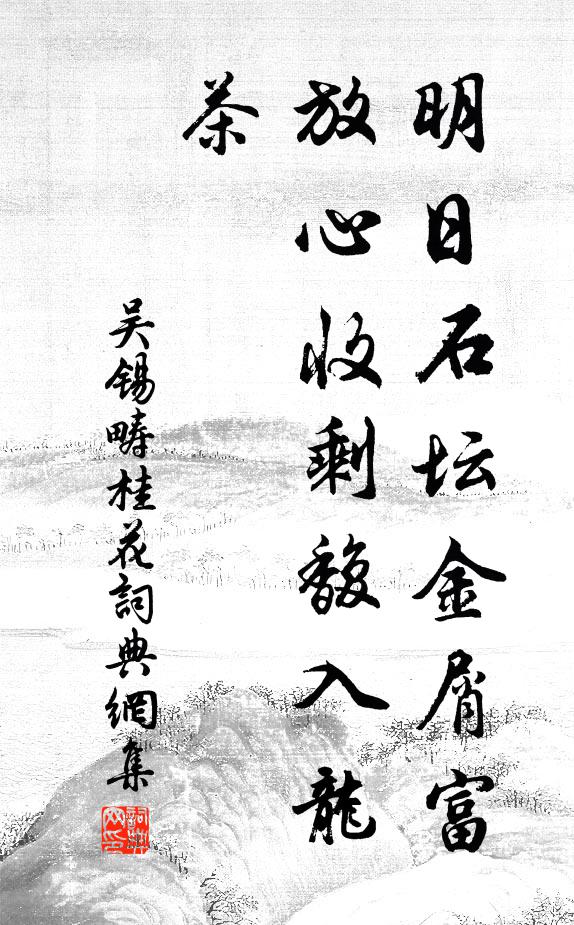 明日石坛金屑富
放心收剩馥入龍
茶
吴锡疇桂花詞典網集
詞典網印